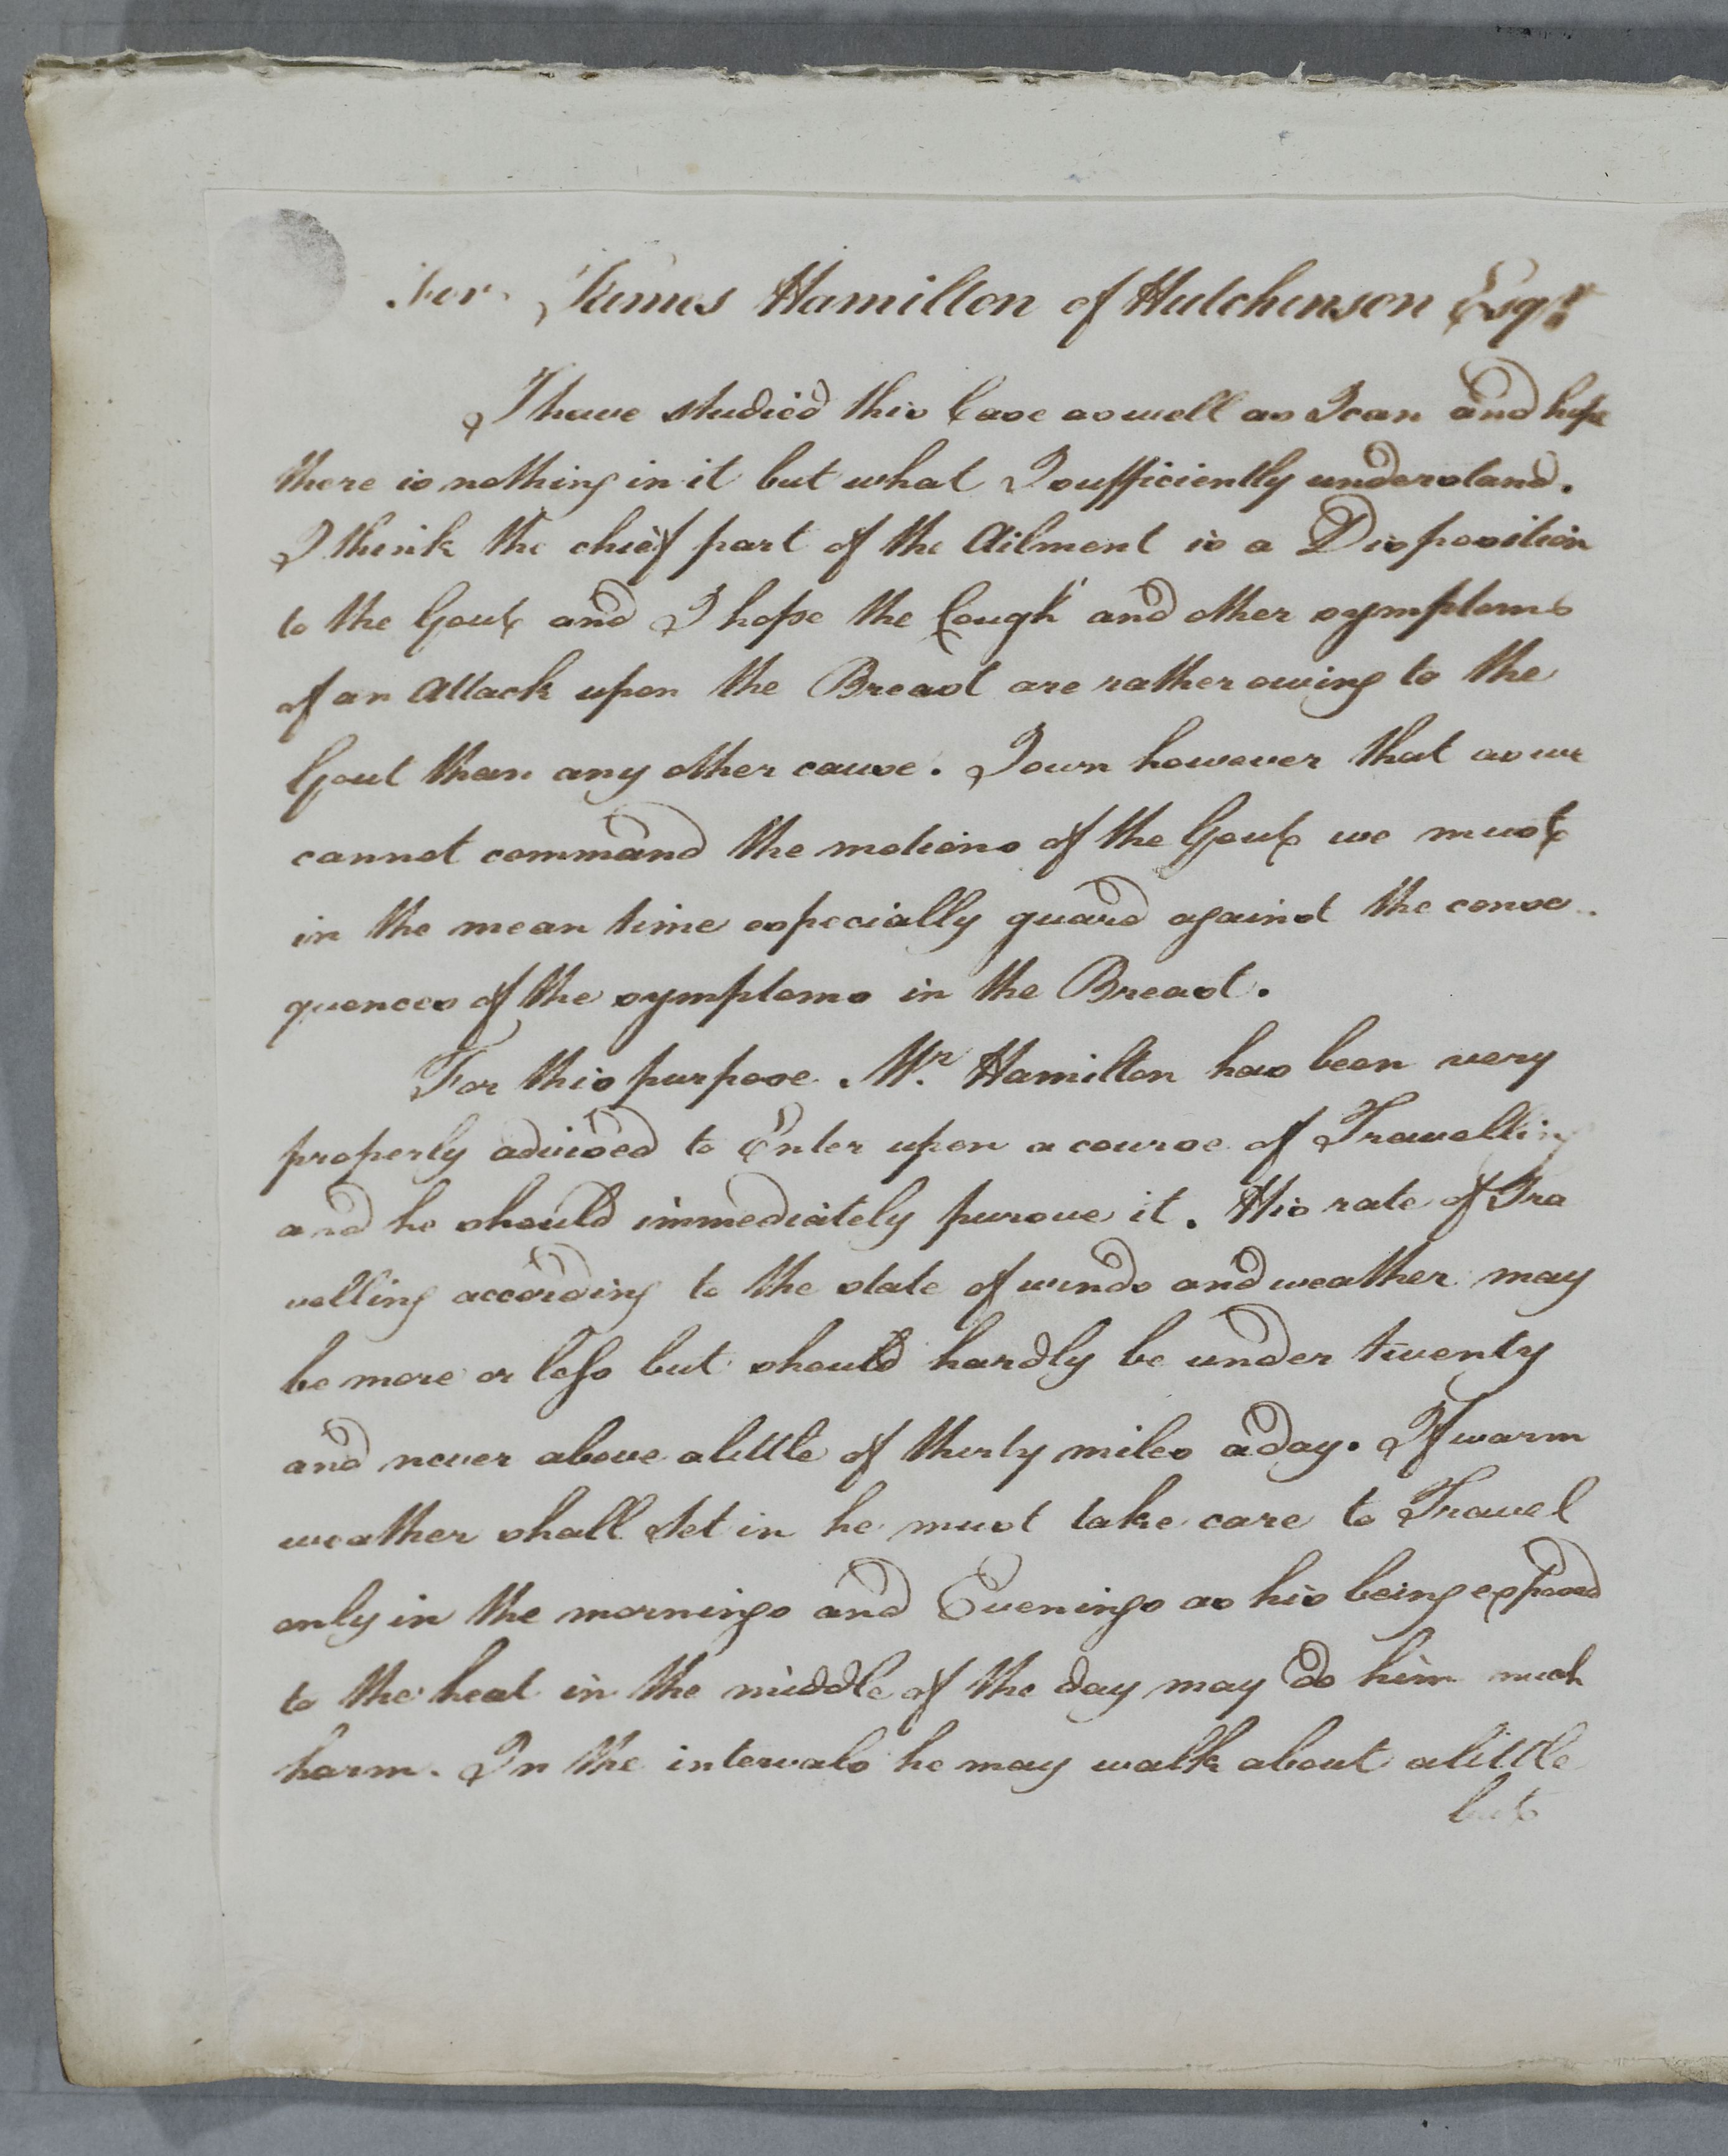 For James Hamilton of Hutcheson Esqr
I have studied this Case as well as I can and hope
there is nothing in it but what I sufficiently understand.
I think the chief part of the Ailment is a Disposition
to the Gout and I hope the Cough and other symptoms
of an Attack upon the Breast are rather owing to the
Gout than any other cause. I own however that as we
cannot command the motions of the Gout we must
in the mean time especially guard against the conse-
quences of the symptoms in the Breast.
For this purpose Mr. Hamilton has been very
properly advised to Enter upon a course of Travelling
and he should immediately pursue it. His rate of Tra
velling according to the state of winds and weather may
be more or less but should hardly be under twenty
and never above a little of thirty miles a day. If warm
weather shall Set in he must take care to Travel
only in the mornings and Evenings as his being exposed
to the heat in the middle of the day may do him much
harm. In the intervals he may walk about a little
but